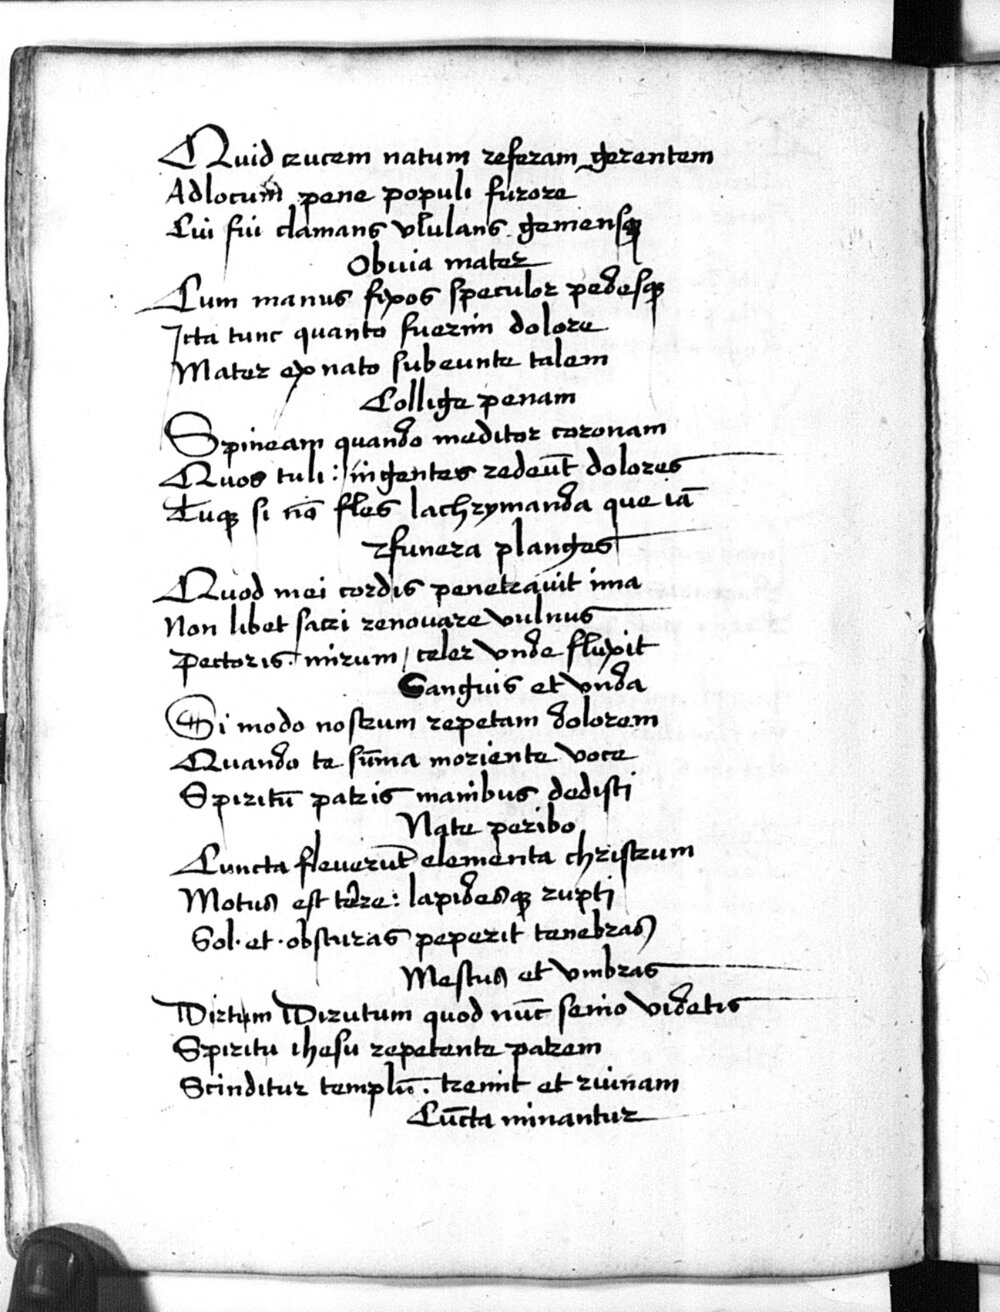 Quid crucem natum referam gerentem
Ad locum pene populi furore
Cui fui clamans ululans gemensqꝫ
Obuia mater
Cum manus fixos speculor pedesqꝫ
Icta tunc quanto fuerim dolore
Mater ex nato subeunte talem
Collige penam
Spineam quando meditor coronam
Quos tuli: ingentes redeūt dolores
Tuqꝫ si nō fles lachrymanda que iā
funera planges
Quod mei cordis penetrauit ima
Non libet sacri renouare vulnus
Pectoris. mirum / celer vnde fluxit
Sanguis et vnda
Si modo nostrum repetam dolorem
Quando te sūma moriente voce
Spiritū patris manibus dedisti
Nate peribo
Cuncta fleuerūt elementa christum
Motus est terre: lapidesqꝫ rupti
Sol. et. obscuras peperit tenebras
Mestus et vmbras
Dirutum quod nūc senio videtis
Spiritu ihesu repetente patrem
Scinditur templū. tremit et ruinam
Cūcta minantur